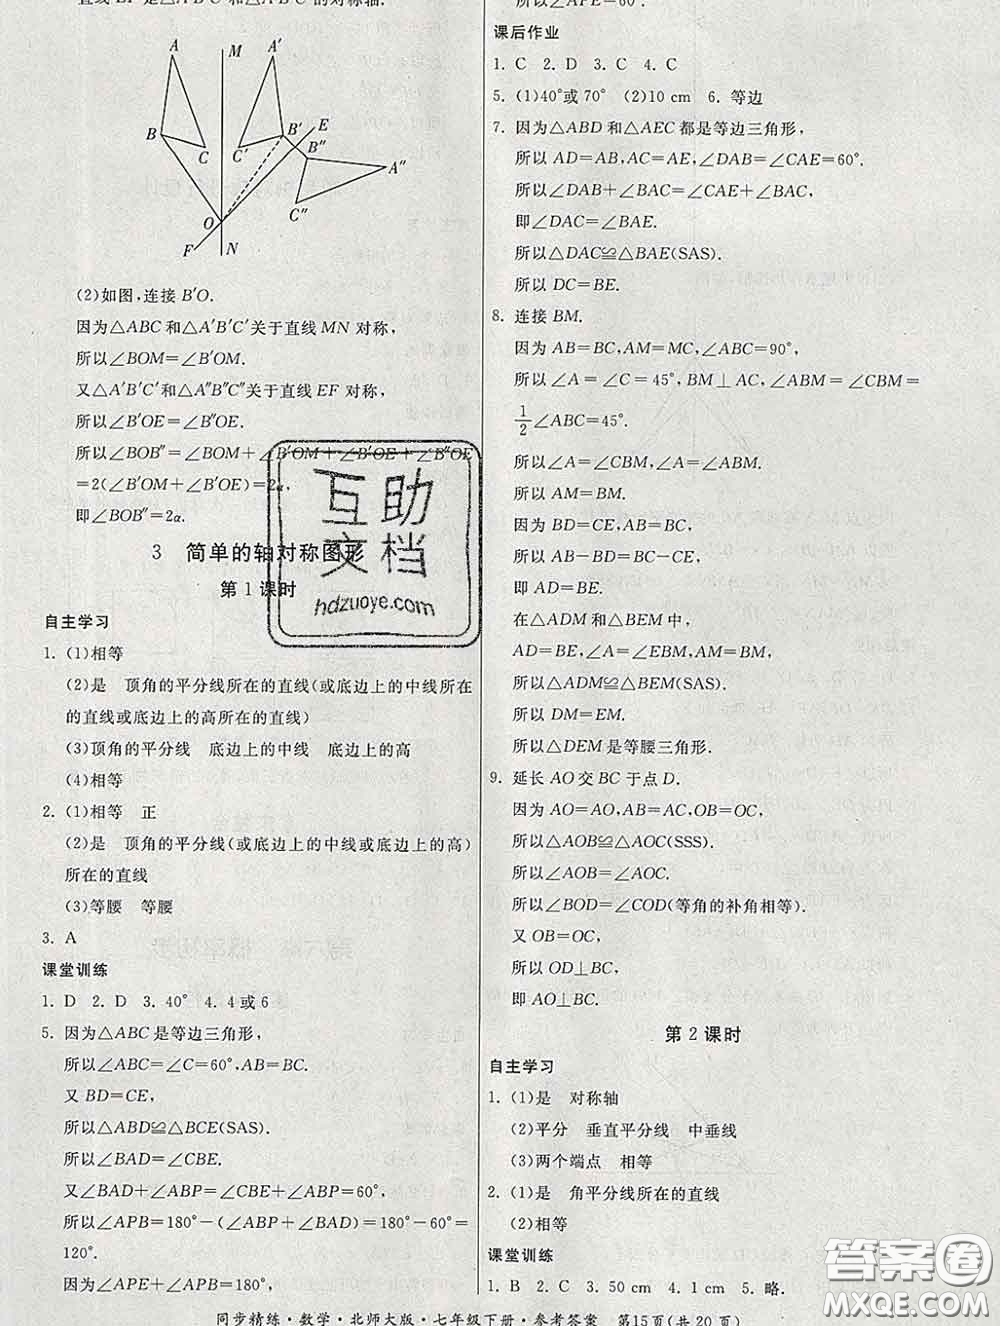 A
A′
M
B
B′
E
B″
C
C′
A″
C″
O
F
N
(2)如图,连接 B′O.
因为△ABC 和△A′B′C′关于直线 MN 对称,
所以∠BOM=∠B′OM.
又△A′B′C′和△A″B″C″关于直线 EF 对称,
所以∠B′OE=∠B″OE.
所以∠BOB″=∠BOM+∠B′OM+∠B′OE+∠B″OE
=2(∠B′OM+∠B′OE)=2α,
即∠BOB″=2α.
3 简单的轴对称图形
第 1 课时
自主学习
1. (1)相等
(2)是 顶角的平分线所在的直线(或底边上的中线所在
的直线或底边上的高所在的直线)
(3)顶角的平分线 底边上的中线 底边上的高
(4)相等
2. (1)相等 正
(2)是 顶角的平分线(或底边上的中线或底边上的高)
所在的直线
(3)等腰 等腰
3. A
课堂训练
1. D 2. D 3. 40° 4. 4 或 6
5. 因为△ABC 是等边三角形,
所以∠ABC=∠C=60°,AB=BC.
又 BD=CE,
所以△ABD≌△BCE(SAS).
所以∠BAD=∠CBE.
又∠BAD+∠ABP=∠CBE+∠ABP=60°,
所以∠APB=180°-(∠ABP+∠BAD)=180°-60°=
120°.
因为∠APE+∠APB=180°,
所以∠APE=60°.
课后作业
1. C 2. D 3. C 4. C
5. (1)40°或 70° (2)10 cm 6. 等边
7. 因为△ABD 和△AEC 都是等边三角形,
所以 AD=AB,AC=AE,∠DAB=∠CAE=60°.
所以∠DAB+∠BAC=∠CAE+∠BAC,
即∠DAC=∠BAE.
所以△DAC≌△BAE(SAS).
所以 DC=BE.
8. 连接 BM.
因为 AB=BC,AM=MC,∠ABC=90°,
所以∠A=∠C=45°,BM⊥AC,∠ABM=∠CBM=
1/2∠ABC=45°.
所以∠A=∠CBM,∠A=∠ABM.
所以 AM=BM.
因为 BD=CE,AB=BC,
所以 AB-BD=BC-CE.
即 AD=BE.
在△ADM 和△BEM 中,
AD=BE,∠A=∠EBM,AM=BM,
所以△ADM≌△BEM(SAS).
所以 DM=EM.
所以△DEM 是等腰三角形.
9. 延长 AO 交 BC 于点 D.
因为 AO=AO,AB=AC,OB=OC,
所以△AOB≌△AOC(SSS).
所以∠AOB=∠AOC.
所以∠BOD=∠COD(等角的补角相等).
又 OB=OC,
所以 OD⊥BC,
即 AO⊥BC.
第 2 课时
自主学习
1. (1)是 对称轴
(2)平分 垂直平分线 中垂线
(3)两个端点 相等
2. (1)是 角平分线所在的直线
(2)相等
课堂训练
1. B 2. C 3. 50 cm 4. 1 cm 5. 略.
同步精练·数学·北师大版·七年级下册·参考答案 第15页(共 20 页)
互助
文档
hdzuoye.com
答案圈
MXQE.COM